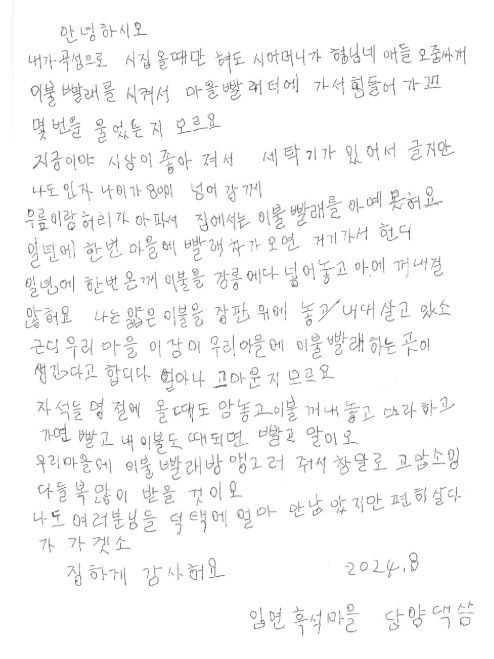 안녕하시오
내가 곡성으로 시집 올때만 혀도 시어머니가 형님네 애들 오줌싸게
이불 빨래를 시켜서 마을빨래터에 가서 힘들어 가꼬
몇번을 울었는지 모르요
지금이야 시상이 좋아 져서 세탁기가 있어서 글지만
나도 인자 나이가 80이 넘어 감께
무릎이랑 허리가 아파서 집에서는 이불빨래를 아예 못혀요
일년에 한번 마을에 빨래차가 오면 거기가서 헌디
일년에 한번 온께 이불을 장롱에다 넣어놓고 아예 꺼내질
않혀요 나는 얇은 이불을 장판 위에 놓고 내대 살고 있소
근디 우리 마을 이장이 우리마을에 이불빨래하는 곳이
생긴다고 합디다 얼마나 고마운지 모르요
자석들 명절에 올때도 맘놓고 이불 꺼내놓고 쓰라하고
가면 빨고 내 이불도 때되면 빨고 말이오
우리마을에 이불빨래방 맹그러 줘서 참말로 고맙소잉
다들 복 많이 받을 것이오
나도 여러분님들 덕택에 얼마 안남았지만 편히살다
가 가겟소
징하게 감사혀요 2024.8
입면 흑석마을 담양댁 씀